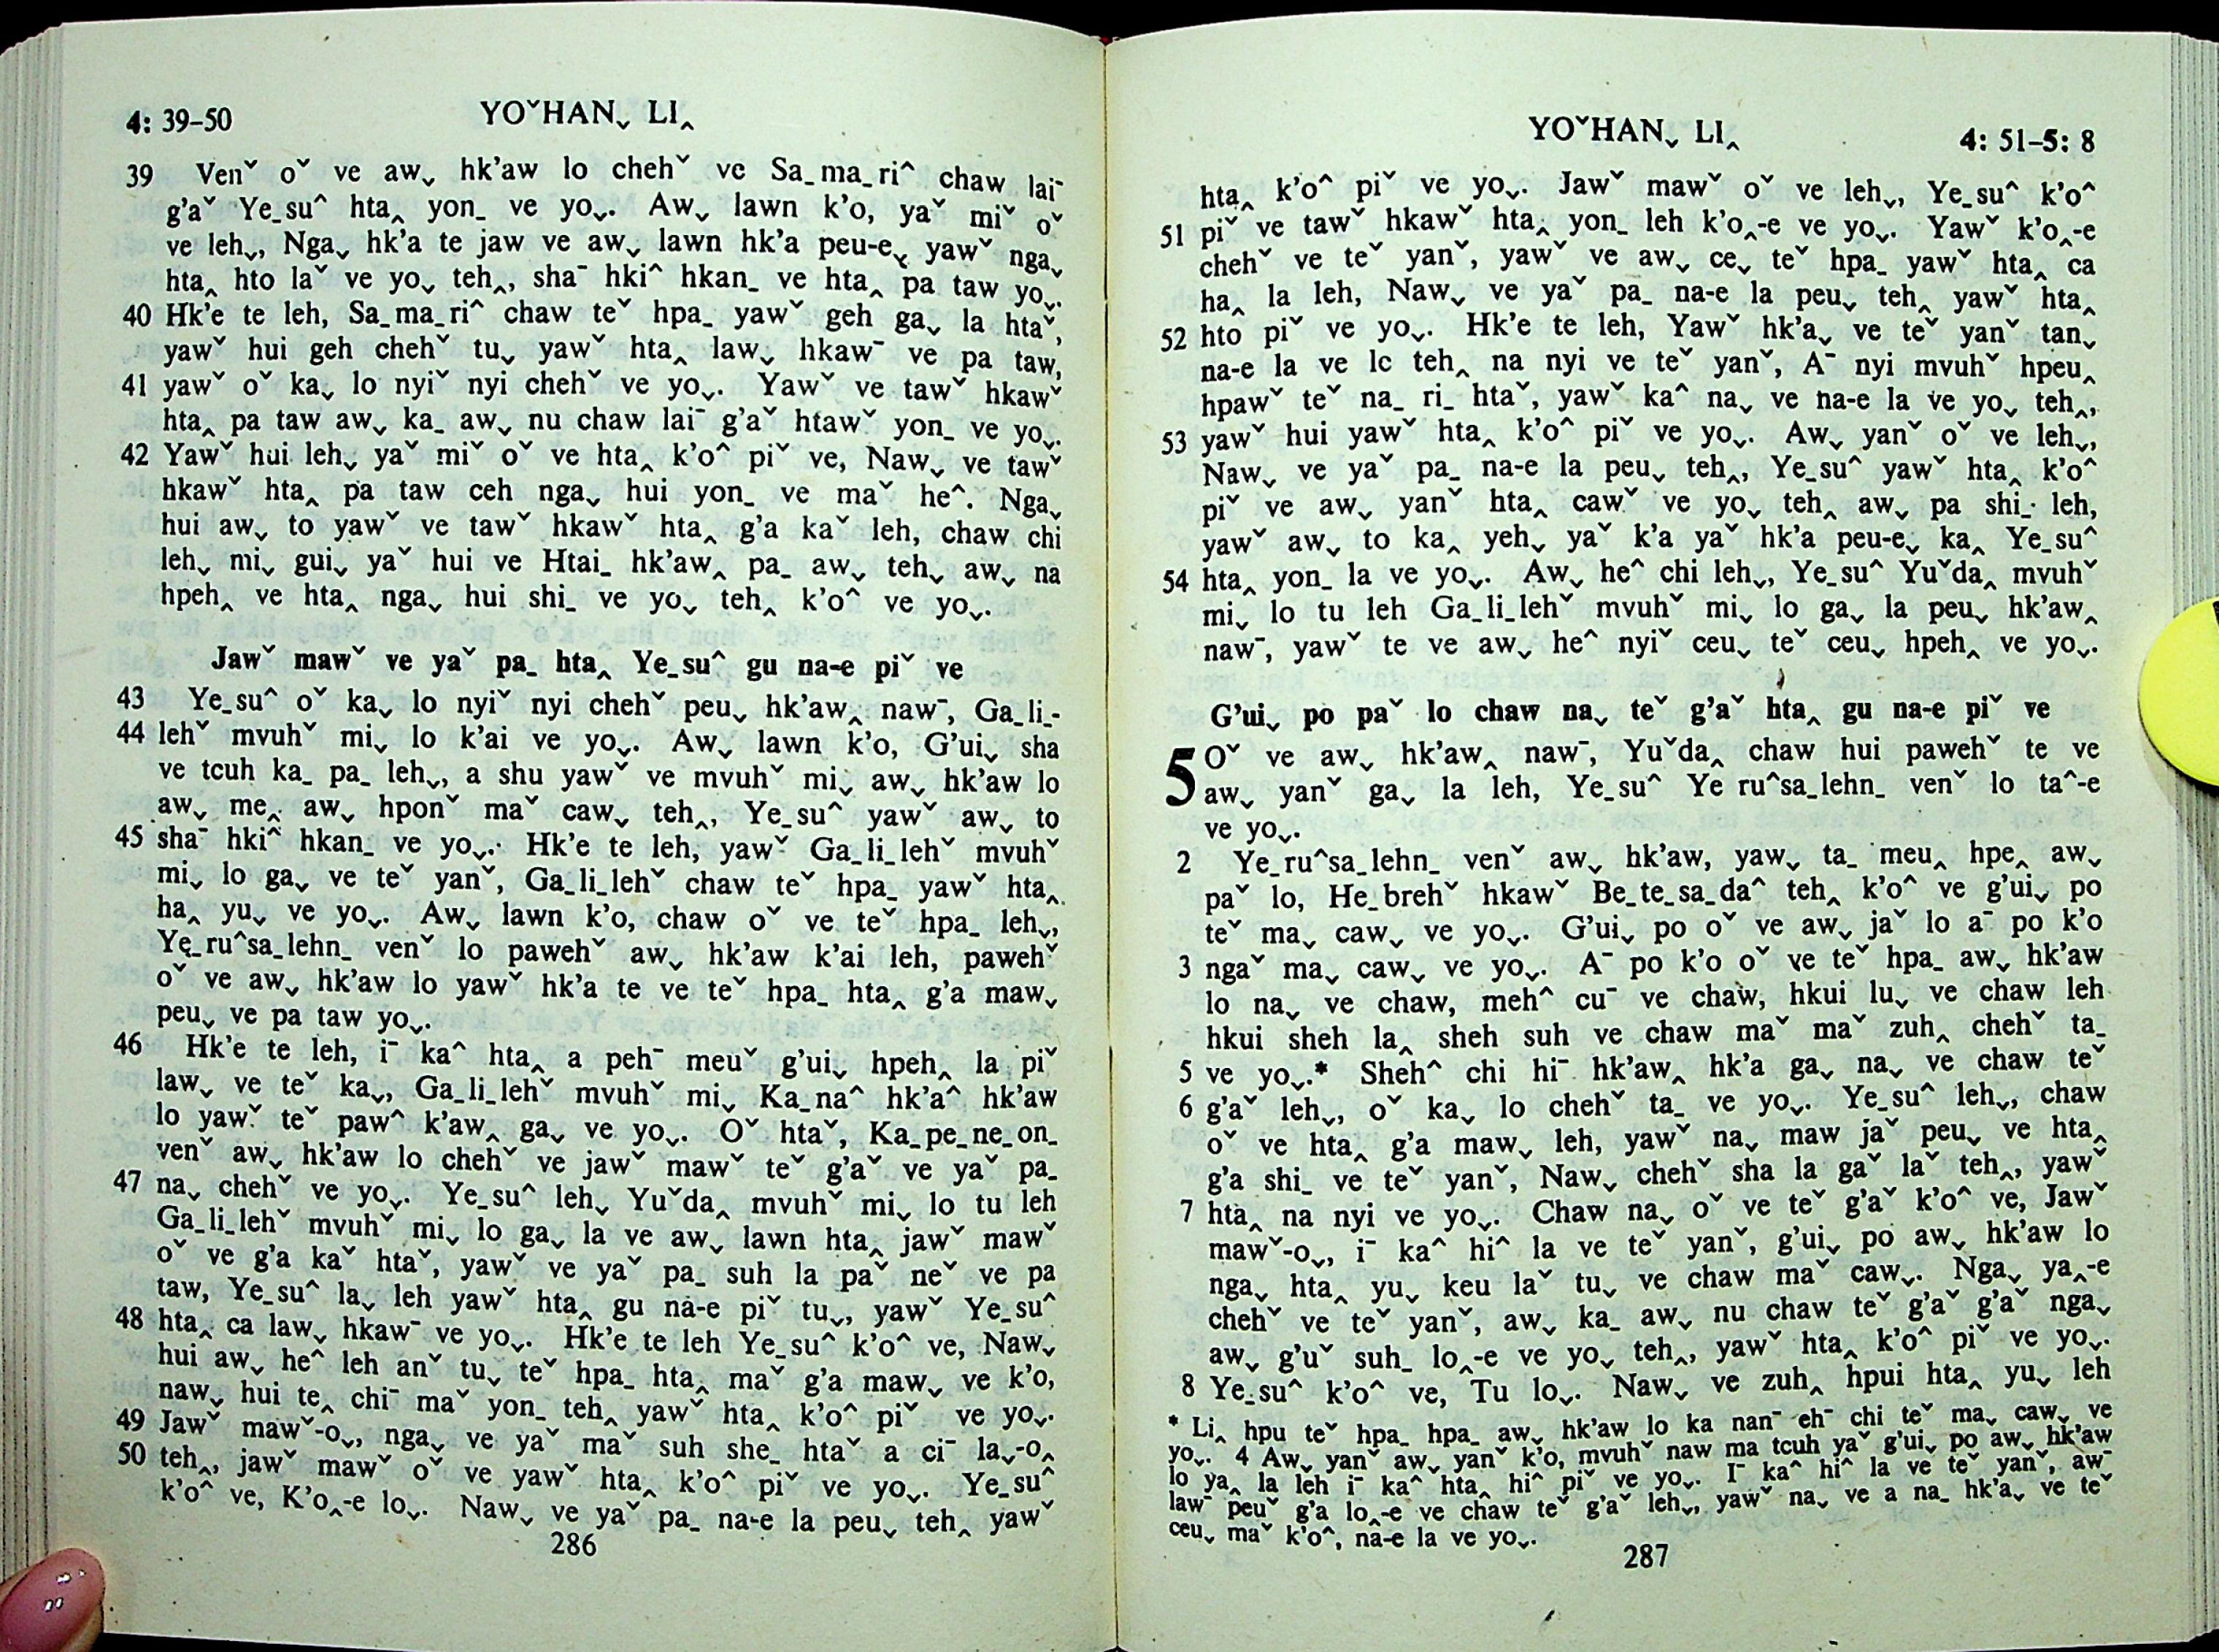 4: 39–50
YOˇHANˬ LI‸
39 Venˇ oˇ ve awˬ hk'aw lo chehˇ ve Sa_ma_ri^ chaw laiˉ
g'aˇ Ye_su^ hta‸ yon_ ve yoˬ. Awˬ lawn k'o, yaˇ miˇ oˇ
ve lehˬ, Ngaˬ hk'a te jaw ve awˬ lawn hk'a peu-eˬ yawˇ ngaˬ
hta‸ hto laˇ ve yoˬ teh‸, shaˉ hki^ hkan_ ve hta‸ pa taw yoˬ.
40 Hk'e te leh, Sa_ma_ri^ chaw teˇ hpa_ yawˇ geh gaˬ la htaˇ,
yawˇ hui geh chehˇ tuˬ yawˇ hta‸ lawˬ hkawˉ ve pa taw,
41 yawˇ oˇ kaˬ lo nyiˇ nyi chehˇ ve yoˬ. Yawˇ ve tawˇ hkawˇ
hta‸ pa taw awˬ ka_ awˬ nu chaw laiˉ g'aˇ htawˇ yon_ ve yoˬ.
42 Yawˇ hui lehˬ yaˇ miˇ oˇ ve hta‸ k'o^ piˇ ve, Nawˬ ve tawˇ
hkawˇ hta‸ pa taw ceh ngaˬ hui yon_ ve maˇ he^. Ngaˬ
hui awˬ to yawˇ ve tawˇ hkawˇ hta‸ g'a kaˇ leh, chaw chi
lehˬ miˬ guiˬ yaˇ hui ve Htai_ hk'aw‸ pa_ awˬ tehˬ awˬ na
hpeh‸ ve hta‸ ngaˬ hui shi_ ve yoˬ teh‸ k'o^ ve yoˬ.
Jawˇ mawˇ ve yaˇ pa_ hta‸ Ye_su^ gu na-e piˇ ve
43 Ye_su^ oˇ kaˬ lo nyiˇ nyi chehˇ peuˬ hk'aw‸ nawˉ, Ga_li_-
44 lehˇ mvuhˇ miˬ lo k'ai ve yoˬ. Awˬ lawn k'o, G'uiˬ sha
ve tcuh ka_ pa_ lehˬ, a shu yawˇ ve mvuhˇ miˬ awˬ hk'aw lo
awˬ me‸ awˬ hponˇ maˇ cawˬ teh‸, Ye_su^ yawˇ awˬ to
45 shaˉ hki^ hkan_ ve yoˬ. Hk'e te leh, yawˇ Ga_li_lehˇ mvuhˇ
miˬ lo gaˬ ve teˇ yanˇ, Ga_li_lehˇ chaw teˇ hpa_ yawˇ hta‸
ha‸ yuˬ ve yoˬ. Awˬ lawn k'o, chaw oˇ ve teˇ hpa_ lehˬ,
Ye_ru^sa_lehn_ venˇ lo pawehˇ awˬ hk'aw k'ai leh, pawehˇ
oˇ ve awˬ hk'aw lo yawˇ hk'a te ve teˇ hpa_ hta‸ g'a mawˬ
peuˬ ve pa taw yoˬ.
46 Hk'e te leh, iˉ ka^ hta‸ a pehˉ meuˇ g'uiˬ hpeh‸ la piˇ
lawˬ ve teˇ kaˬ, Ga_li_lehˇ mvuhˇ miˬ Ka_na^ hk'a^ hk'aw
lo yawˇ teˇ paw^ k'aw‸ gaˬ ve yoˬ. Oˇ htaˇ, Ka_pe_ne_on_
venˇ awˬ hk'aw lo chehˇ ve jawˇ mawˇ teˇ g'aˇ ve yaˇ pa_
47 naˬ chehˇ ve yoˬ. Ye_su^ lehˬ Yuˇda‸ mvuhˇ miˬ lo tu leh
Ga_li_lehˇ mvuhˇ miˬ lo gaˬ la ve awˬ lawn hta‸ jawˇ mawˇ
oˇ ve g'a kaˇ htaˇ, yawˇ ve yaˇ pa_ suh la paˇ neˇ ve pa
taw, Ye_su^ laˬ leh yawˇ hta‸ gu na-e piˇ tuˬ, yawˇ Ye_su^
48 hta‸ ca lawˬ hkawˉ ve yoˬ. Hk'e te leh Ye_su^ k'o^ ve, Nawˬ
hui awˬ he^ leh anˇ tuˬ teˇ hpa_ hta‸ maˇ g'a mawˬ ve k'o,
nawˬ hui te‸ chiˉ maˇ yon_ teh‸ yawˇ hta‸ k'o^ piˇ ve yoˬ.
49 Jawˇ mawˇ-oˬ, ngaˬ ve yaˇ maˇ suh she_ htaˇ a ciˉ laˬ-o‸
50 teh‸, jawˇ mawˇ oˇ ve yawˇ hta‸ k'o^ piˇ ve yoˬ. Ye_su^
k'o^ ve, K'o‸-e loˬ. Nawˬ ve yaˇ pa_ na-e la peuˬ teh‸ yawˇ
286
YOˇHANˬ LI‸
4: 51–5: 8
hta‸ k'o^ piˇ ve yoˬ. Jawˇ mawˇ oˇ ve lehˬ, Ye_su^ k'o^
51 piˇ ve tawˇ hkawˇ hta‸ yon_ leh k'o‸-e ve yoˬ. Yawˇ k'o‸-e
chehˇ ve teˇ yanˇ, yawˇ ve awˬ ceˬ teˇ hpa_ yawˇ hta‸ ca
ha‸ la leh, Nawˬ ve yaˇ pa_ na-e la peuˬ teh‸ yawˇ hta‸
52 hto piˇ ve yoˬ. Hk'e te leh, Yawˇ hk'aˬ ve teˇ yanˇ tanˬ
na-e la ve le teh‸ na nyi ve teˇ yanˇ, Aˉ nyi mvuhˇ hpeu‸
hpawˇ teˇ na_ ri_ htaˇ, yawˇ ka^ naˬ ve na-e la ve yoˬ teh‸,
53 yawˇ hui yawˇ hta‸ k'o^ piˇ ve yoˬ. Awˬ yanˇ oˇ ve lehˬ,
Nawˬ ve yaˇ pa_ na-e la peuˬ teh‸, Ye_su^ yawˇ hta‸ k'o^
piˇ ve awˬ yanˇ hta‸ cawˇ ve yoˬ teh‸ awˬ pa shi_ leh,
yawˇ awˬ to ka‸ yehˬ yaˇ k'a yaˇ hk'a peu-eˬ ka‸ Ye_su^
54 hta‸ yon_ la ve yoˬ. Awˬ he^ chi lehˬ, Ye_su^ Yuˇda‸ mvuhˇ
miˬ lo tu leh Ga_li_lehˇ mvuhˇ miˬ lo gaˬ la peuˬ hk'aw‸
nawˉ, yawˇ te ve awˬ he^ nyiˇ ceuˬ teˇ ceuˬ hpeh‸ ve yoˬ.
G'uiˬ po paˇ lo chaw naˬ teˇ g'aˇ hta‸ gu na-e piˇ ve
5 Oˇ ve awˬ hk'aw‸ nawˉ, Yuˇda‸ chaw hui pawehˇ te ve
awˬ yanˇ gaˬ la leh, Ye_su^ Ye ru^sa_lehn_ venˇ lo ta^-e
ve yoˬ.
2 Ye_ru^sa_lehn_ venˇ awˬ hk'aw, yawˬ ta_ meu‸ hpe‸ awˬ
paˇ lo, He_brehˇ hkawˇ Be_te_sa_da^ teh‸ k'o^ ve g'uiˬ po
teˇ maˬ cawˬ ve yoˬ. G'uiˬ po oˇ ve awˬ jaˇ lo aˉ po k'o
3 ngaˇ maˬ cawˬ ve yoˬ. Aˉ po k'o oˇ ve teˇ hpa_ awˬ hk'aw
lo naˬ ve chaw, meh^ cuˉ ve chaw, hkui luˬ ve chaw leh
hkui sheh la‸ sheh suh ve chaw maˇ maˇ zuh‸ chehˇ ta_
5 ve yoˬ.* Sheh^ chi hiˉ hk'aw‸ hk'a gaˬ naˬ ve chaw teˇ
6 g'aˇ lehˬ, oˇ kaˬ lo chehˇ ta_ ve yoˬ. Ye_su^ lehˬ, chaw
oˇ ve hta‸ g'a mawˬ leh, yawˇ naˬ maw jaˇ peuˬ ve hta‸
g'a shi_ ve teˇ yanˇ, Nawˬ chehˇ sha la gaˇ laˇ teh‸, yawˇ
7 hta‸ na nyi ve yoˬ. Chaw naˬ oˇ ve teˇ g'aˇ k'o^ ve, Jawˇ
mawˇ-oˬ, iˉ ka^ hi^ la ve teˇ yanˇ, g'uiˬ po awˬ hk'aw lo
ngaˬ hta‸ yuˬ keu laˇ tuˬ ve chaw maˇ cawˬ. Ngaˬ ya‸-e
chehˇ ve teˇ yanˇ, awˬ ka_ awˬ nu chaw teˇ g'aˇ g'aˇ ngaˬ
awˬ g'uˇ suh_ lo‸-e ve yoˬ teh‸, yawˇ hta‸ k'o^ piˇ ve yoˬ.
8 Ye_su^ k'o^ ve, Tu loˬ. Nawˬ ve zuh‸ hpui hta‸ yuˬ leh
* Li‸ hpu teˇ hpa_ hpa_ awˬ hk'aw lo ka nanˉ ehˉ chi teˇ maˬ cawˬ ve
yoˬ. 4 Awˬ yanˇ awˬ yanˇ k'o, mvuhˇ naw ma tcuh yaˇ g'uiˬ po awˬ hk'aw
lo ya‸ la leh iˉ ka^ hta‸ hi^ piˇ ve yoˬ. Iˉ ka^ hi^ la ve teˇ yanˇ, awˉ
lawˉ peuˇ g'a lo‸-e ve chaw teˇ g'aˇ lehˬ, yawˇ naˬ ve a na_ hk'aˬ ve teˇ
ceuˬ maˇ k'o^, na-e la ve yoˬ.
287